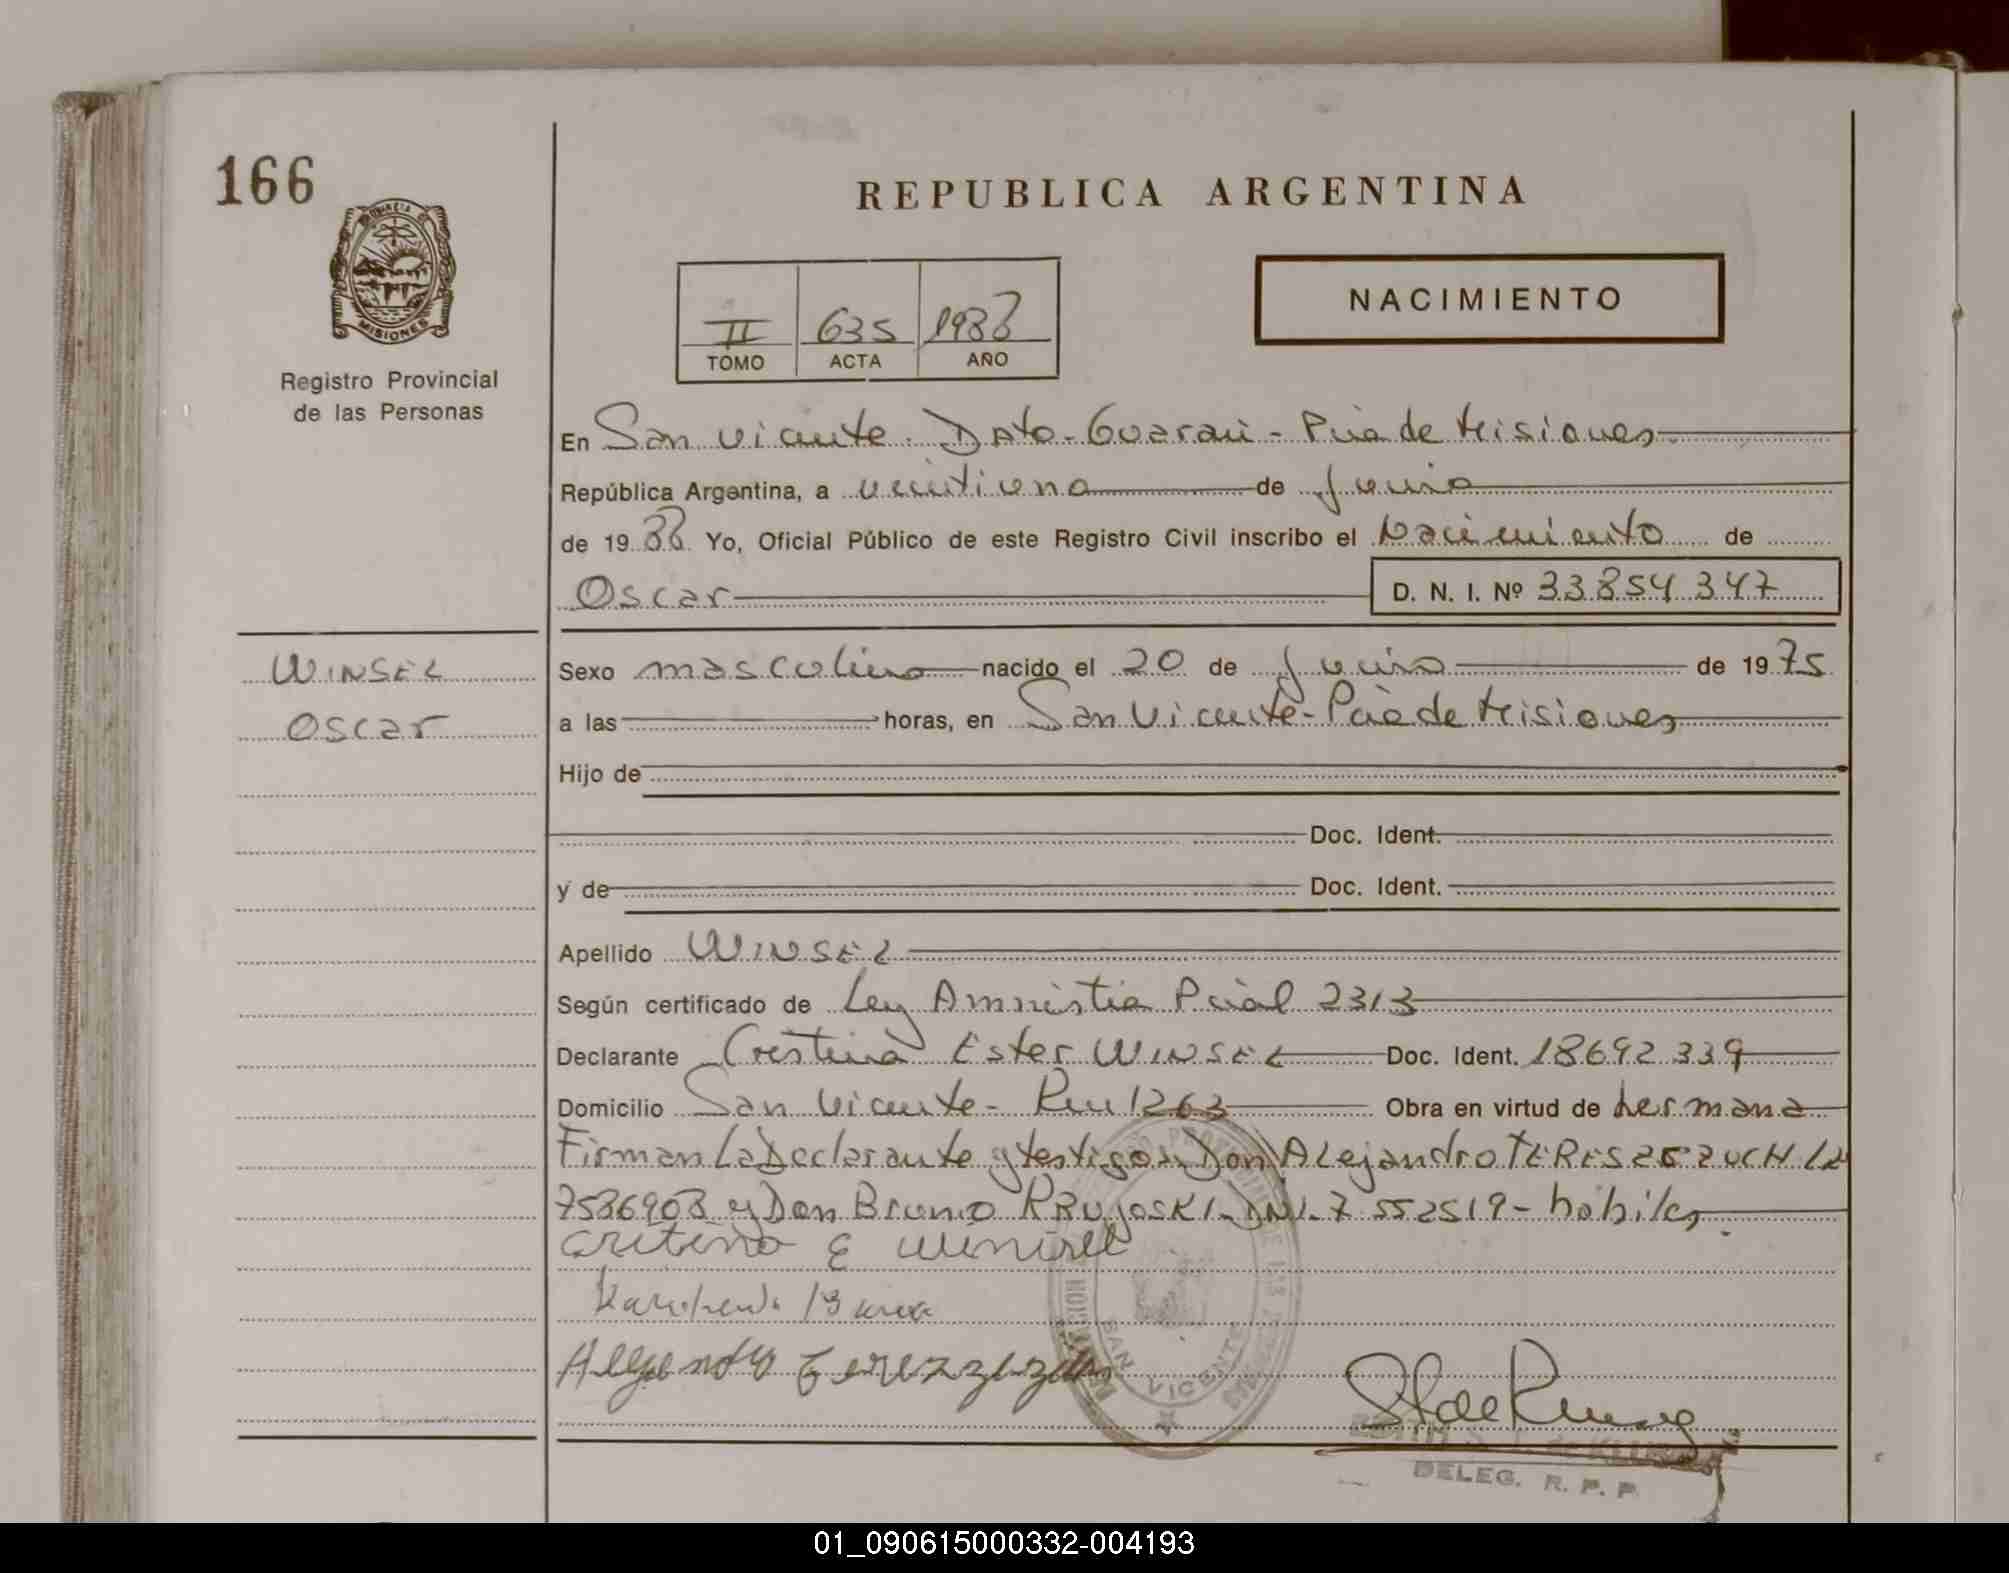 166
REPUBLICA ARGENTINA
PROVINCIA DE
MISIONES
Registro Provincial
de las Personas
II 635 1988
TOMO ACTA AÑO
NACIMIENTO
En San Vicente. Dpto-Guarani-Pcia de Misiones
República Argentina, a veintiuno de Junio
de 1988 Yo, Oficial Público de este Registro Civil inscribo el Nacimiento de
Oscar D. N. I. Nº 33854347
WINSEL
Oscar
Sexo masculino nacido el 20 de Junio de 1975
a las horas, en San Vicente-Pcia de Misiones
Hijo de
Doc. Ident.
y de Doc. Ident.
Apellido WINSEL
Según certificado de Ley Amnistia Pcial 2313
Declarante Cristina Ester WINSEL Doc. Ident. 18692339
Domicilio San Vicente- 1263 Obra en virtud de hermana
Firman La Declarante y testigos Don Alejandro TERESZEZUCH LE
7586908 y Don Bruno DNI-7552519-habiles
SAN VICENTE
DELEG. R. P. P.
01_090615000332-004193